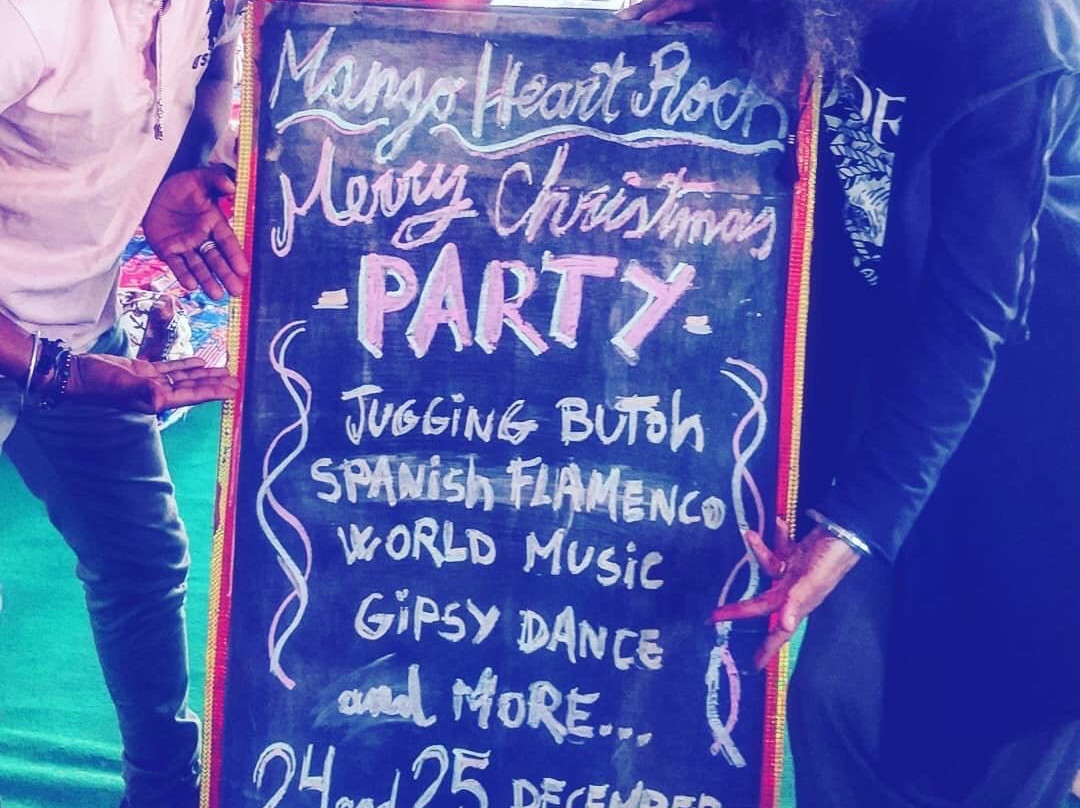 Mango Heart Rock
Merry Christmas
-PARTY-
JUGGiNG BUTOh
SPANiSh FLAMENCO
WORLD MUSiC
GiPSY DANCE
and MORE...
24 and 25 DECEMBER